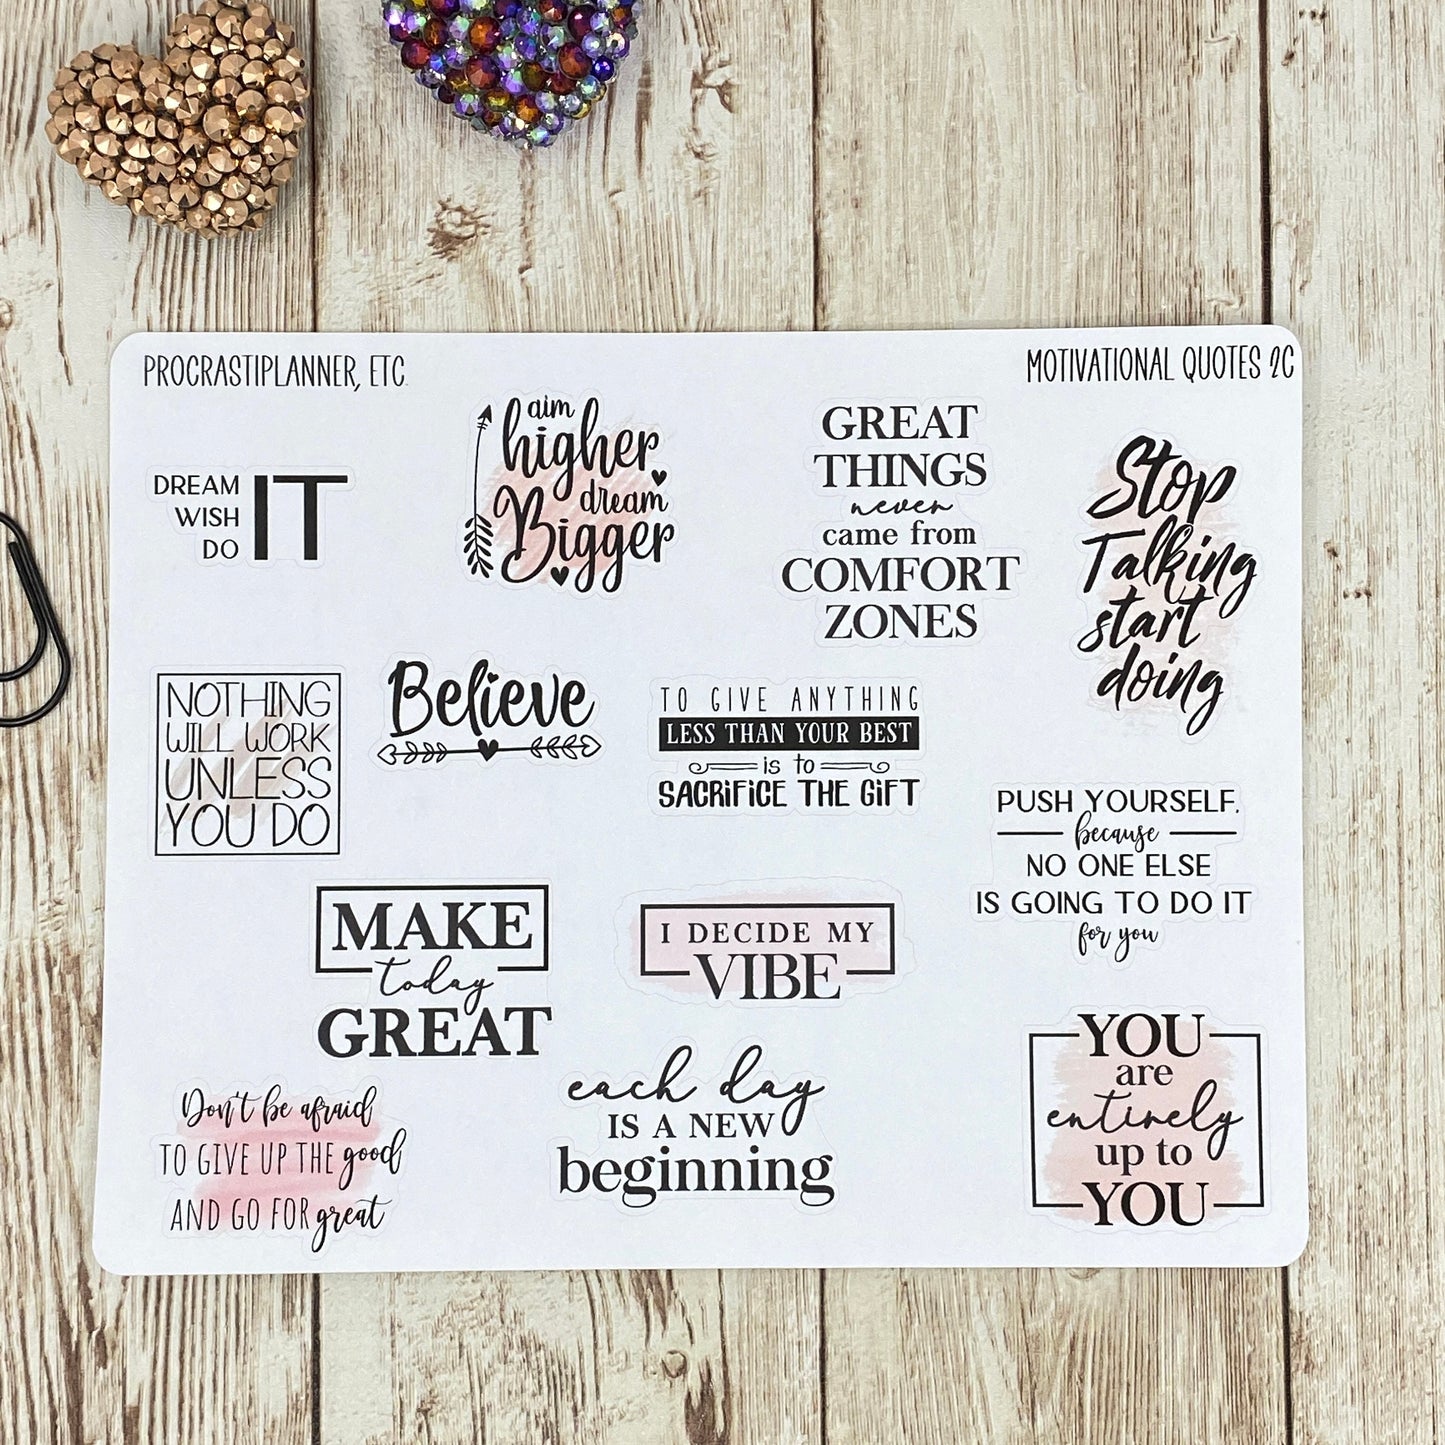 PROCRASTIPLANNER, ETC.
MOTIVATIONAL QUOTES 2C
DREAM
WISH
DO
IT
aim
higher
dream
Bigger
GREAT
THINGS
never
came from
COMFORT
ZONES
Stop
Talking
start
doing
NOTHING
WILL WORK
UNLESS
YOU DO
Believe
TO GIVE ANYTHING
LESS THAN YOUR BEST
is to
SACRIFICE THE GIFT
PUSH YOURSELF,
because
NO ONE ELSE
IS GOING TO DO IT
for you
MAKE
today
GREAT
I DECIDE MY
VIBE
Don't be afraid
TO GIVE UP THE good
AND GO FOR great
each day
IS A NEW
beginning
YOU
are
entirely
up to
YOU